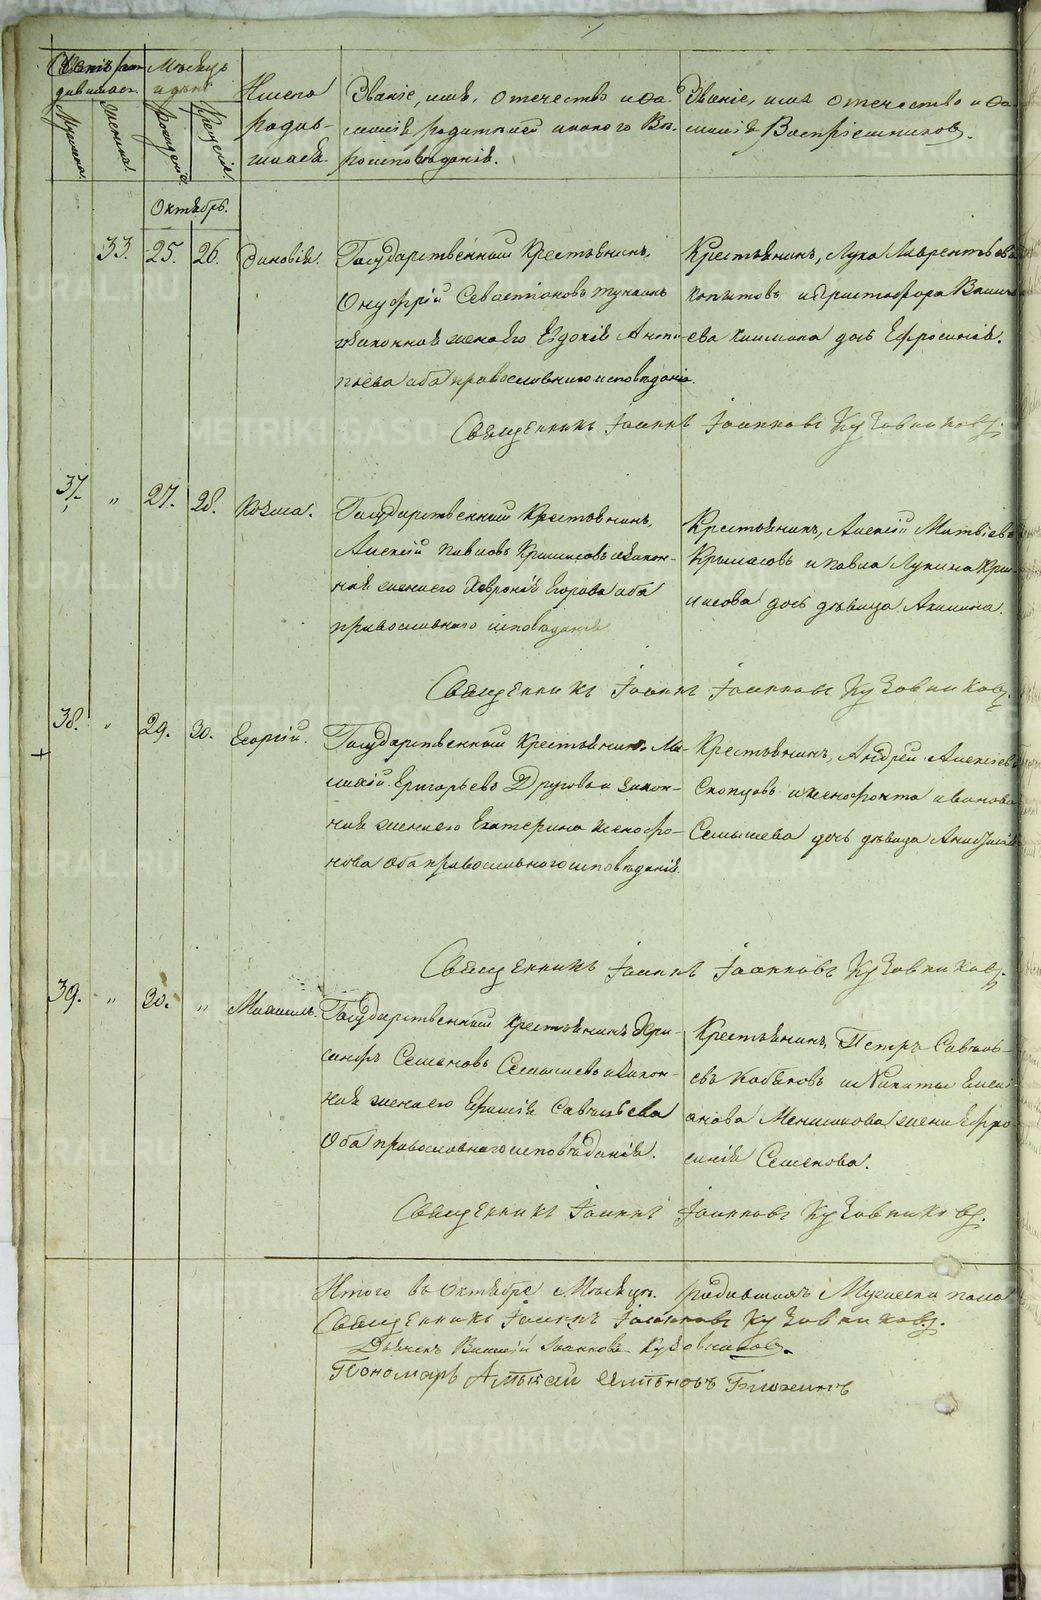 Счетъ ро-
дившихся.
Мужеска.
Женска.
Мѣсяцъ
и день
Рожденія.
Крещенія.
Имена
родив-
шихся.
Званіе, имя, отечество и фа-
милія родителей и какого Вѣ-
роисповѣданія.
Званіе, имя отечество и фа-
милія Воспріемниковъ.
Октябрь.
33. 25. 26. Зиновія.
Государственный Крестьянинъ,
Онуфрій Севастіановъ
законная жена его Евдокія Анти-
пьева оба православнаго исповѣданія.
Крестьянинъ, Лука Лаврентьевъ
Копытовъ и Христофора Васильева
дочь Ефросинія.
Священникъ Іоаннъ Іоанновъ Кузовниковъ.
37. " 27. 28. Козма.
Государственный Крестьянинъ,
Алексѣй Павловъ Крыласовъ и закон-
ная жена его Хавронія Егорова оба
православнаго исповѣданія
Крестьянинъ, Алексѣй Матвіевъ
Крыласовъ и Павла Лукина Кры-
ласова дочь дѣвица Акилина.
Священникъ Іоаннъ Іоанновъ Кузовниковъ.
38. " 29. 30. Георгій.
Государственный Крестьянинъ, Ми-
хаилъ Григорьевъ Друговъ и закон-
ная жена его Екатерина Ксенофо-
нова оба православнаго исповѣданія.
Крестьянинъ, Андрей Алексіевъ
Скопцовъ и Ксенофонта Иванова
Семышева дочь дѣвица
Священникъ Іоаннъ Іоанновъ Кузовниковъ.
39. " 30. " Михаилъ.
Государственный Крестьянинъ Хри-
санфъ Семеновъ Семышевъ и закон-
ная жена его Ефимія Савельева
Оба православнаго исповѣданія.
Крестьянинъ, Петръ Савель-
евъ Кабаковъ и Никиты Емель-
анова Меншикова жена Ефро-
синія Семенова.
Священникъ Іоаннъ Іоанновъ Кузовниковъ.
Итого въ Октябрѣ Мѣсяцѣ родившихъ Мужеска пола
Священникъ Іоаннъ Іоанновъ Кузовниковъ.
Дьячекъ Василій Іоанновъ Кузовниковъ.
Пономарь Алексѣй
METRIKI.GASO-URAL.RU